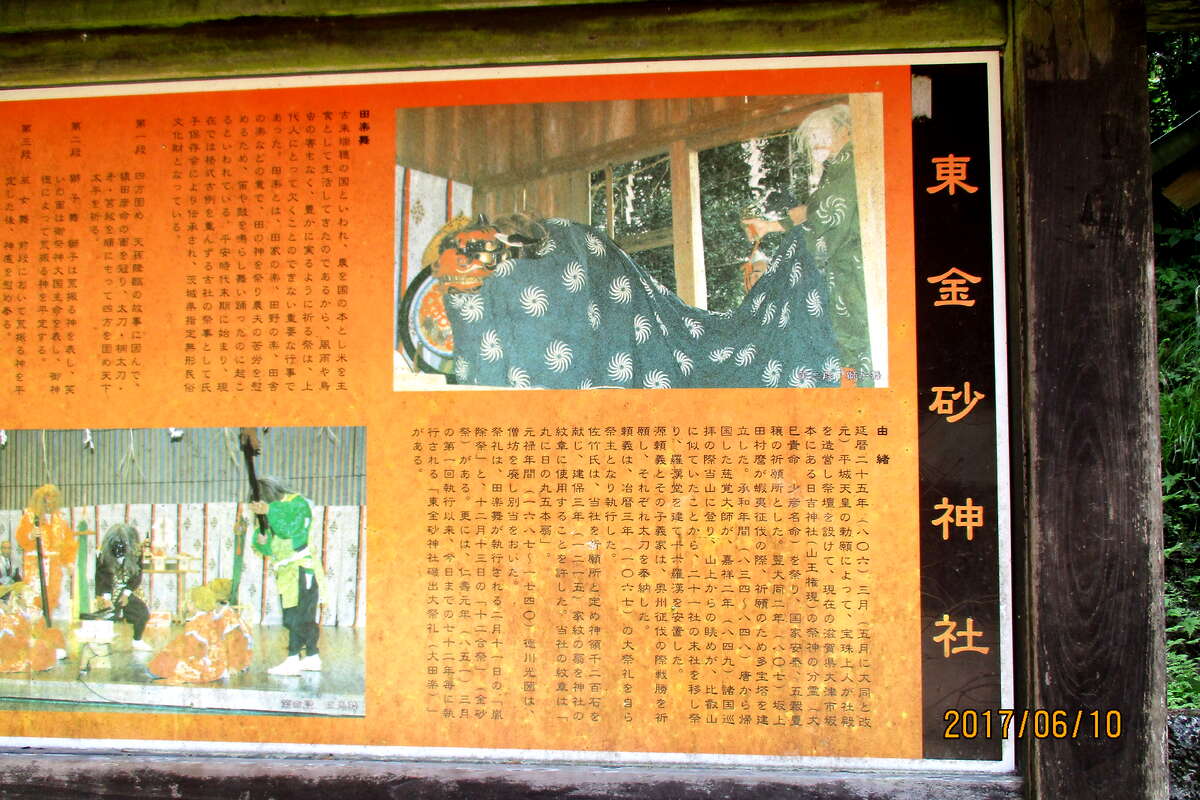 東金砂神社
由緒
延暦二十五年（八〇六）三月（五月に大同と改
元）平城天皇の勅願によって、宝珠上人が社殿
を造営し祭壇を設けて、現在の滋賀県大津市坂
本にある日吉神社（山王権現）の祭神の分霊（大
己貴命・少彦名命）を祭り、国家安泰、五穀豊
穣の祈願所とした。翌大同二年（八〇七）坂上
田村麿が蝦夷征伐の際、祈願のため多宝塔を建
立した。承和年間（八三四～八四八）唐から帰
国した慈覚大師が、嘉祥二年（八四九）諸国巡
拝の際当山に登り、山上からの眺めが、比叡山
に似ていたことから、二十一社の末社を移し祭
り、羅漢堂を建て十六羅漢を安置した。
源頼義とその子義家は、奥州征伐の際戦勝を祈
願し、それぞれ太刀を奉納した。
頼義は、治暦三年（一〇六七）の大祭礼を自ら
祭主となり執行した。
佐竹氏は、当社を祈願所と定め神領千二百石を
献じ、建保三年（一二一五）家紋の扇を神社の
紋章に使用することを許した。当社の紋章は「
丸に日の丸五本扇」
元禄年間（一六八七～一七四〇）徳川光圀は
僧坊を廃し別当をおいた。
祭礼は、田楽舞が執行される二月十一日の「嵐
除祭」と、十二月十三日の「十二合祭」（金砂
祭）がある。更には、仁寿元年（八五一）三月
の第一回執行以来、今日までの七十二年毎に執
行される「東金砂神社磯出大祭礼（大田楽）」
がある。
田楽舞
古来瑞穂の国といわれ、農を国の本とし米を主
食として生活してきたのであるから、風雨や鳥
虫の害もなく、豊かに実るように祈る祭は、上
代人にとって欠くことのできない重要な行事で
あった。田楽とは、田家の楽、田野の楽、田舎
の楽などの意で、田の神を祭り農夫の苦労を慰
めるため、笛や鼓を鳴らし舞い踊ったのに起こ
るといわれている。平安時代末期に始まり、現
在では格式古例を重んずる古社の祭事として氏
子保存会により伝承され、茨城県指定無形民俗
文化財となっている。
第一段 四方固め 天孫降臨の故事に因んで、
猿田彦命の面を冠り、太刀・桐太刀、
矛・宮絵を順にもって四方を固め天下
太平を祈る。
第二段 獅子舞 獅子は荒振る神を表し、笑
いの面は御祭神大国主命を表し、御神
徳によって荒振る神を平定する。
第三段 巫女舞 前段において荒振る神を平
定した後、神慮を慰め奉る。
2017/06/10